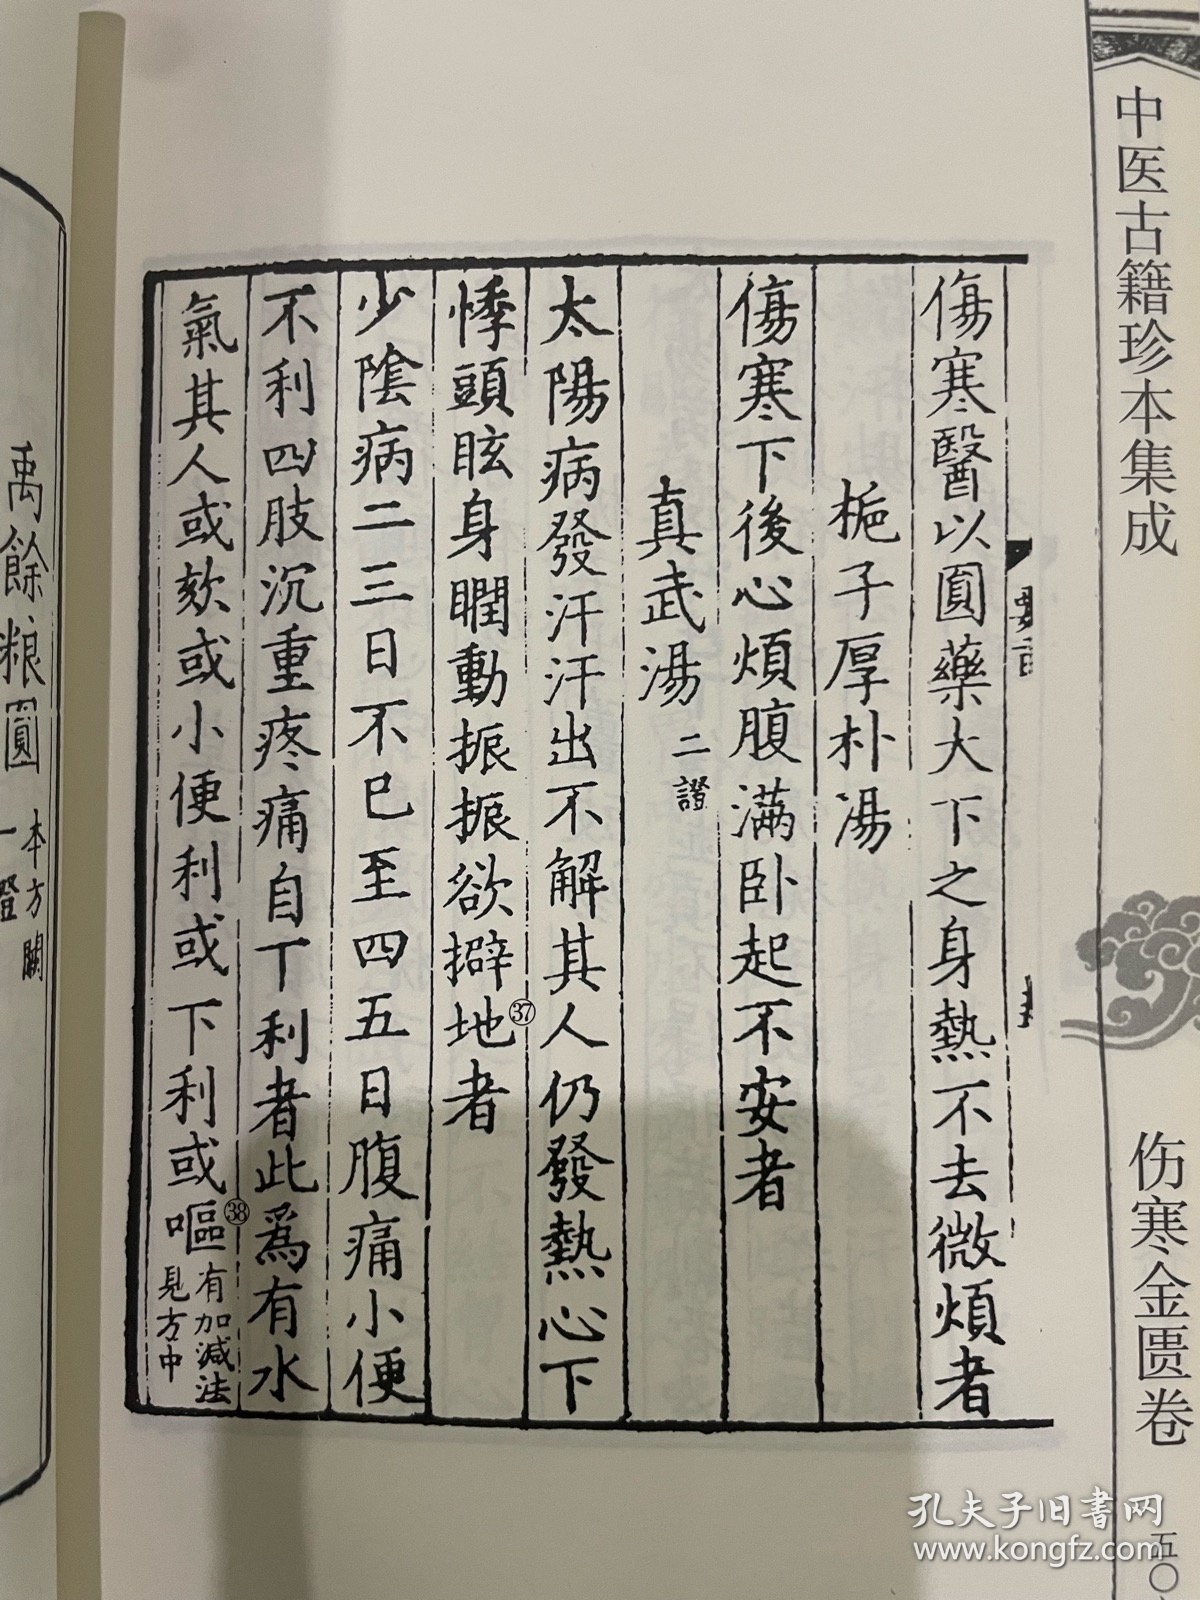 中医古籍珍本集成
伤寒金匮卷
五〇
傷寒醫以圓藥大下之身熱不去微煩者
梔子厚朴湯
傷寒下後心煩腹滿卧起不安者
真武湯 二證
太陽病發汗汗出不解其人仍發熱心下
悸頭眩身瞤動振振欲擗地者㊲
少陰病二三日不已至四五日腹痛小便
不利四肢沉重疼痛自丅利者此爲有水
氣其人或欬或小便利或下利或嘔㊳有加減法
見方中
禹餘粮圓 本方闕
一證
孔夫子旧书网
www.kongfz.com